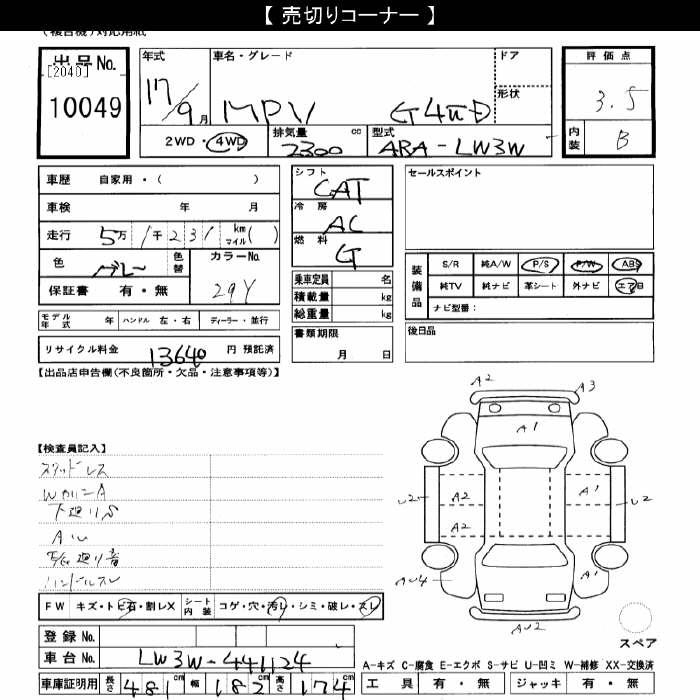 【 売切りコーナー 】
(複合機)対応用紙
出品No.
[2040]
10049
年式
17/9月
車名・グレード
MPV
ドア
形状
評価点
3.5
内装
B
2WD・4WD
排気量
2300
cc
型式
ABA-LW3W
車歴 自家用・( )
車検 年 月
走行 5万1千231 km マイル( )
色 グレー
色替
カラーNo.
29Y
保証書 有・無
シフト
CAT
冷房
AC
燃料
G
乗車定員 名
積載量 kg
総重量 kg
セールスポイント
装備品
S/R 純A/W P/S P/W ABS
純TV 純ナビ 革シート 外ナビ エアB
ナビ型番：
モデル年式 年 ハンドル 左・右 ディーラー・並行
リサイクル料金 13640 円 預託済
書類期限
月 日
後日品
【出品店申告欄(不良箇所・欠品・注意事項等)】
【検査員記入】
スタッドレス
下廻りS
ハンドルスレ
A2
A3
A1
A2
A1
U2
U2
A2
AU4
A1
AU2
FW キズ・トビ石・割レX
シート内装 コゲ・穴・汚レ・シミ・破レ・スレ
登録No.
車台No. LW3W-441124
車庫証明用 長さ 481 cm 幅 182 cm 高さ 174 cm
スペア
A-キズ C-腐食 E-エクボ S-サビ U-凹ミ W-補修 XX-交換済
工具 有・無 ジャッキ 有・無